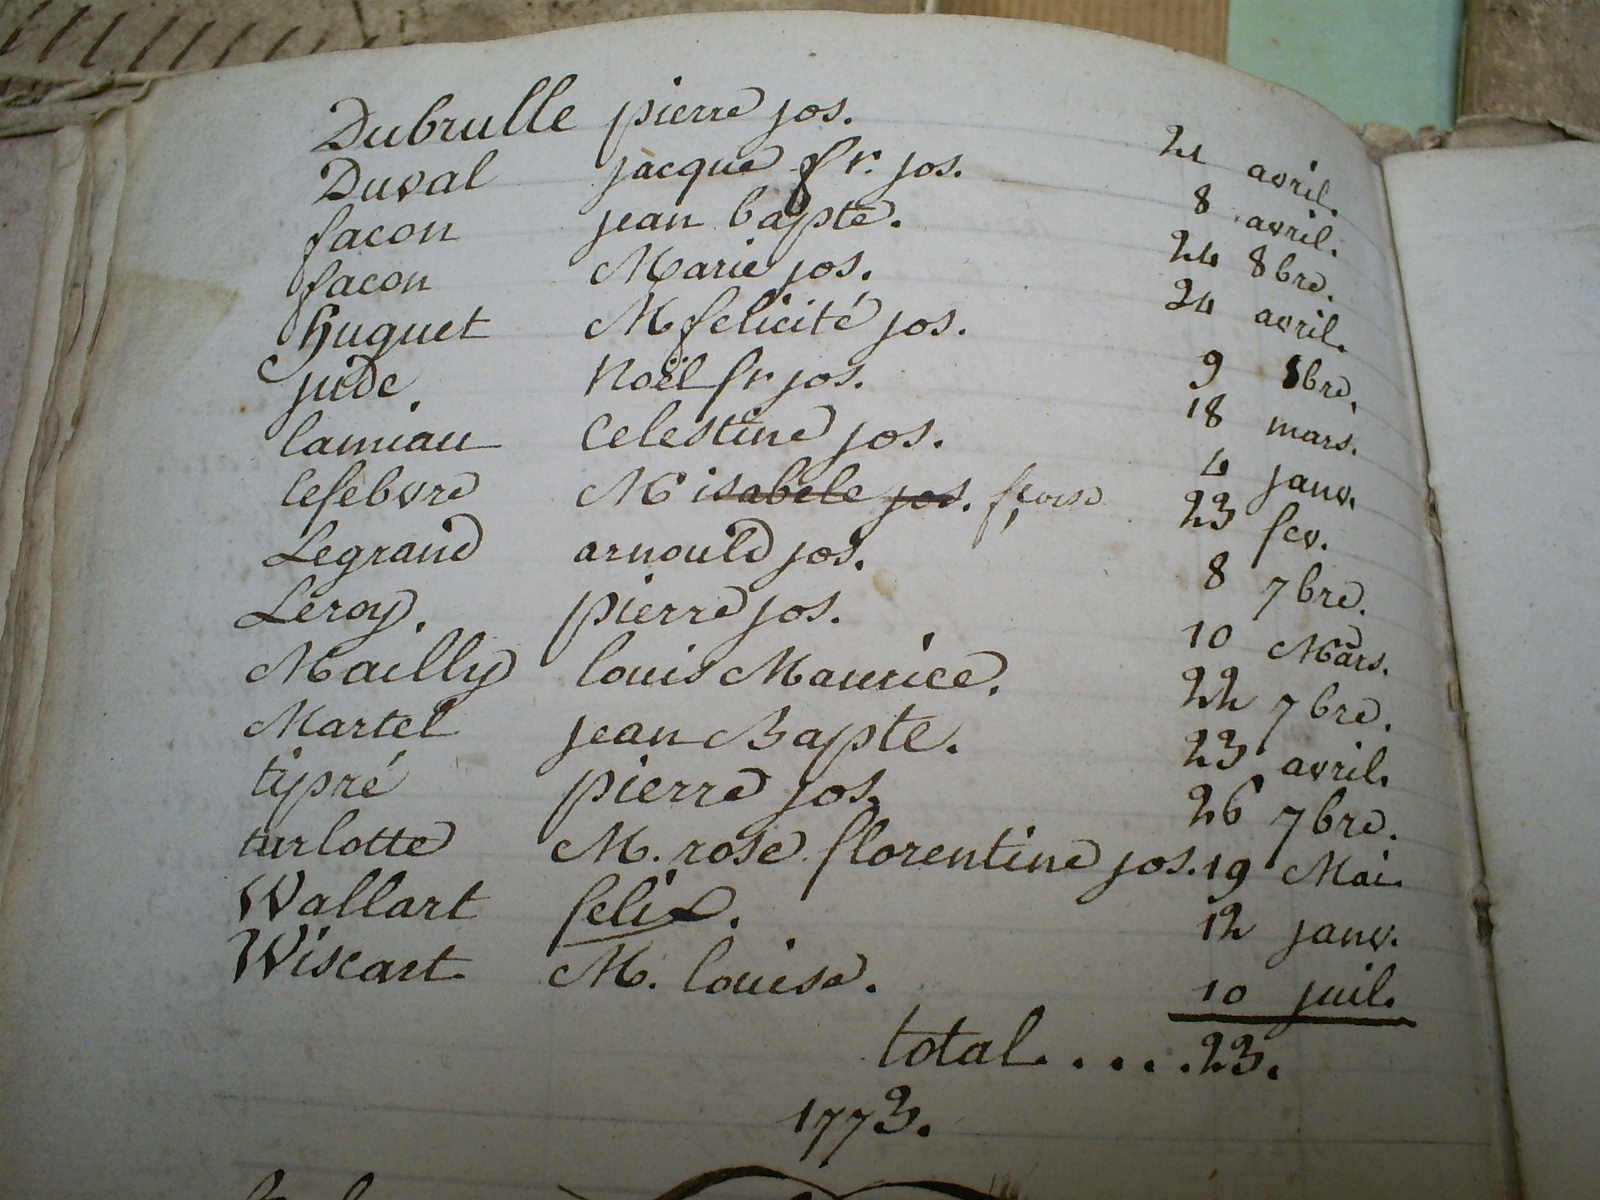 Dubrulle pierre jos. 21 avril.
Duval jacque fr. jos. 8 avril.
facon jean bapte. 24 8bre.
facon Marie jos. 24 avril.
Huguet M felicité jos. 9 8bre.
jude. Noël fr jos. 18 mars.
lamiau Celestine jos. 4 janv.
lefebvre M isabele jos. fçoise 23 fev.
Legrand arnould jos. 8 7bre.
Leroy. pierre jos. 10 Mars.
Mailly louis Maurice. 22 7bre.
Martel jean Bapte. 23 avril.
tipré pierre jos. 26 7bre.
turlotte M. rose florentine jos. 19 Mai.
Wallart felix. 12 janv.
Wiscart M. louise. 10 juil.
total....23.
1773.